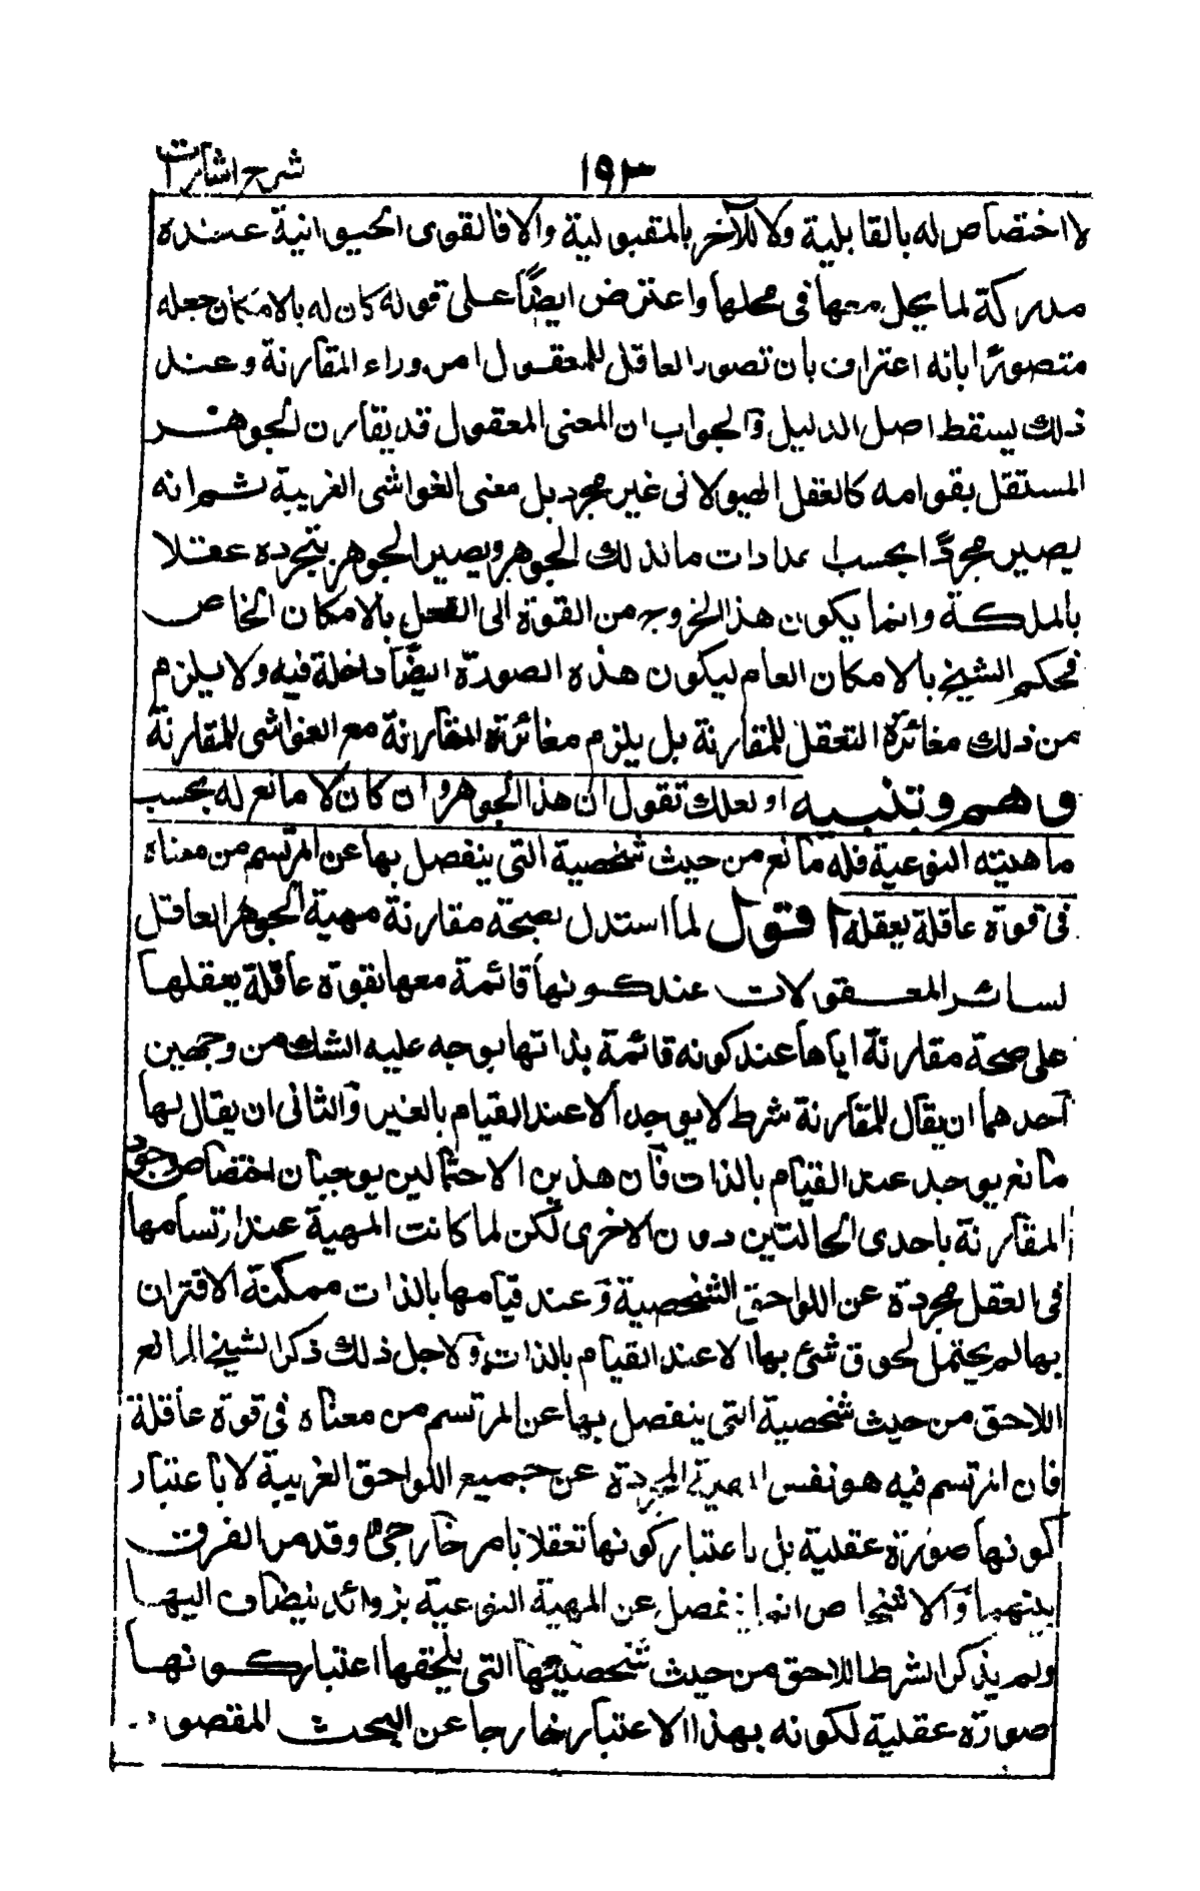 شرح اشارات
١٩٣
لا اختصاص له بالقابلية ولا للآخر بالمقبولية والا فالقوى الحيوانية عنده
مدركة لما يحل معها فى محلها واعترض ايضًا على قوله كان له بالامكان جعله
متصورًا بانه اعتراف بان تصور العاقل للمعقول امر وراء المقارنة وعند
ذلك يسقط اصل الدليل والجواب ان المعنى المعقول قد يقارن الجوهر
المستقل بقوامه كالعقل الهيولانى غير مجرد بل معنى الغواشى الغريبة ثم انه
يصير مجردًا بحسب ما لذلك الجوهر ويصير الجوهر بتجرده عقلا
بالملكة وانما يكون هذا الخروج من القوة الى الفعل بالامكان الخاص
فحكم الشيخ بالامكان العام ليكون هذه الصورة ايضًا داخلة فيه ولا يلزم
من ذلك مغائرة التعقل للمقارنة بل يلزم مغائرة المقارنة مع الغواشى للمقارنة
وهم وتنبيه او لعلك تقول ان هذا الجوهر وان كان لا مانع له بحسب
ماهيته النوعية فله مانع من حيث شخصية التى ينفصل بها عن المرتسم من معناه
فى قوة عاقلة يعقله اقول لما استدل بصحة مقارنة مهية الجوهر العاقل
لسائر المعقولات عند كونها قائمة معها بقوة عاقلة يعقلها
على صحة مقارنة اياها عند كونه قائمة بذاتها يوجه عليه الشك من وجهين
احدهما ان يقال للمقارنة شرط لا يوجد الا عند القيام بالغير والثانى ان يقال لها
مانع يوجد عند القيام بالذات فان هذين الاحتمالين يوجبان اختصاص وجود
المقارنة باحدى الحالتين دون الاخرى لكن لما كانت المهية عند ارتسامها
فى العقل مجردة عن اللواحق الشخصية وعند قيامها بالذات ممكنة الاقتران
بها لم يحتمل لحوق شئ بها الا عند القيام بالذات ولاجل ذلك ذكر الشيخ المانع
اللاحق من حيث شخصية التى ينفصل بها عن المرتسم من معناه فى قوة عاقلة
فان المرتسم فيه هو نفس المجردة عن جميع اللواحق الغريبة لا باعتبار
كونها صورة عقلية بل باعتبار كونها تعقلا بامر خارجى وقد مر الفرق
بينهما والاشخاص انما تفصل عن المهية النوعية بزوائد ينضاف اليها
ولم يذكر الشرط اللاحق من حيث شخصيتها التى يلحقها اعتبار كونها
صورة عقلية لكونه بهذا الاعتبار خارجا عن البحث المقصود